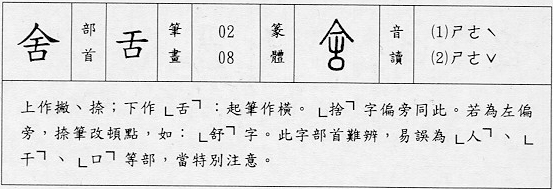 舍 部首 舌 筆畫 02 08 篆體 舍 音讀 (1)ㄕㄜˋ (2)ㄕㄜˇ
上作撇、捺；下作「舌」：起筆作橫。「捨」字偏旁同此。若為左偏
旁，捺筆改頓點，如：「舒」字。此字部首難辨，易誤為「人」、「
干」、「口」等部，當特別注意。